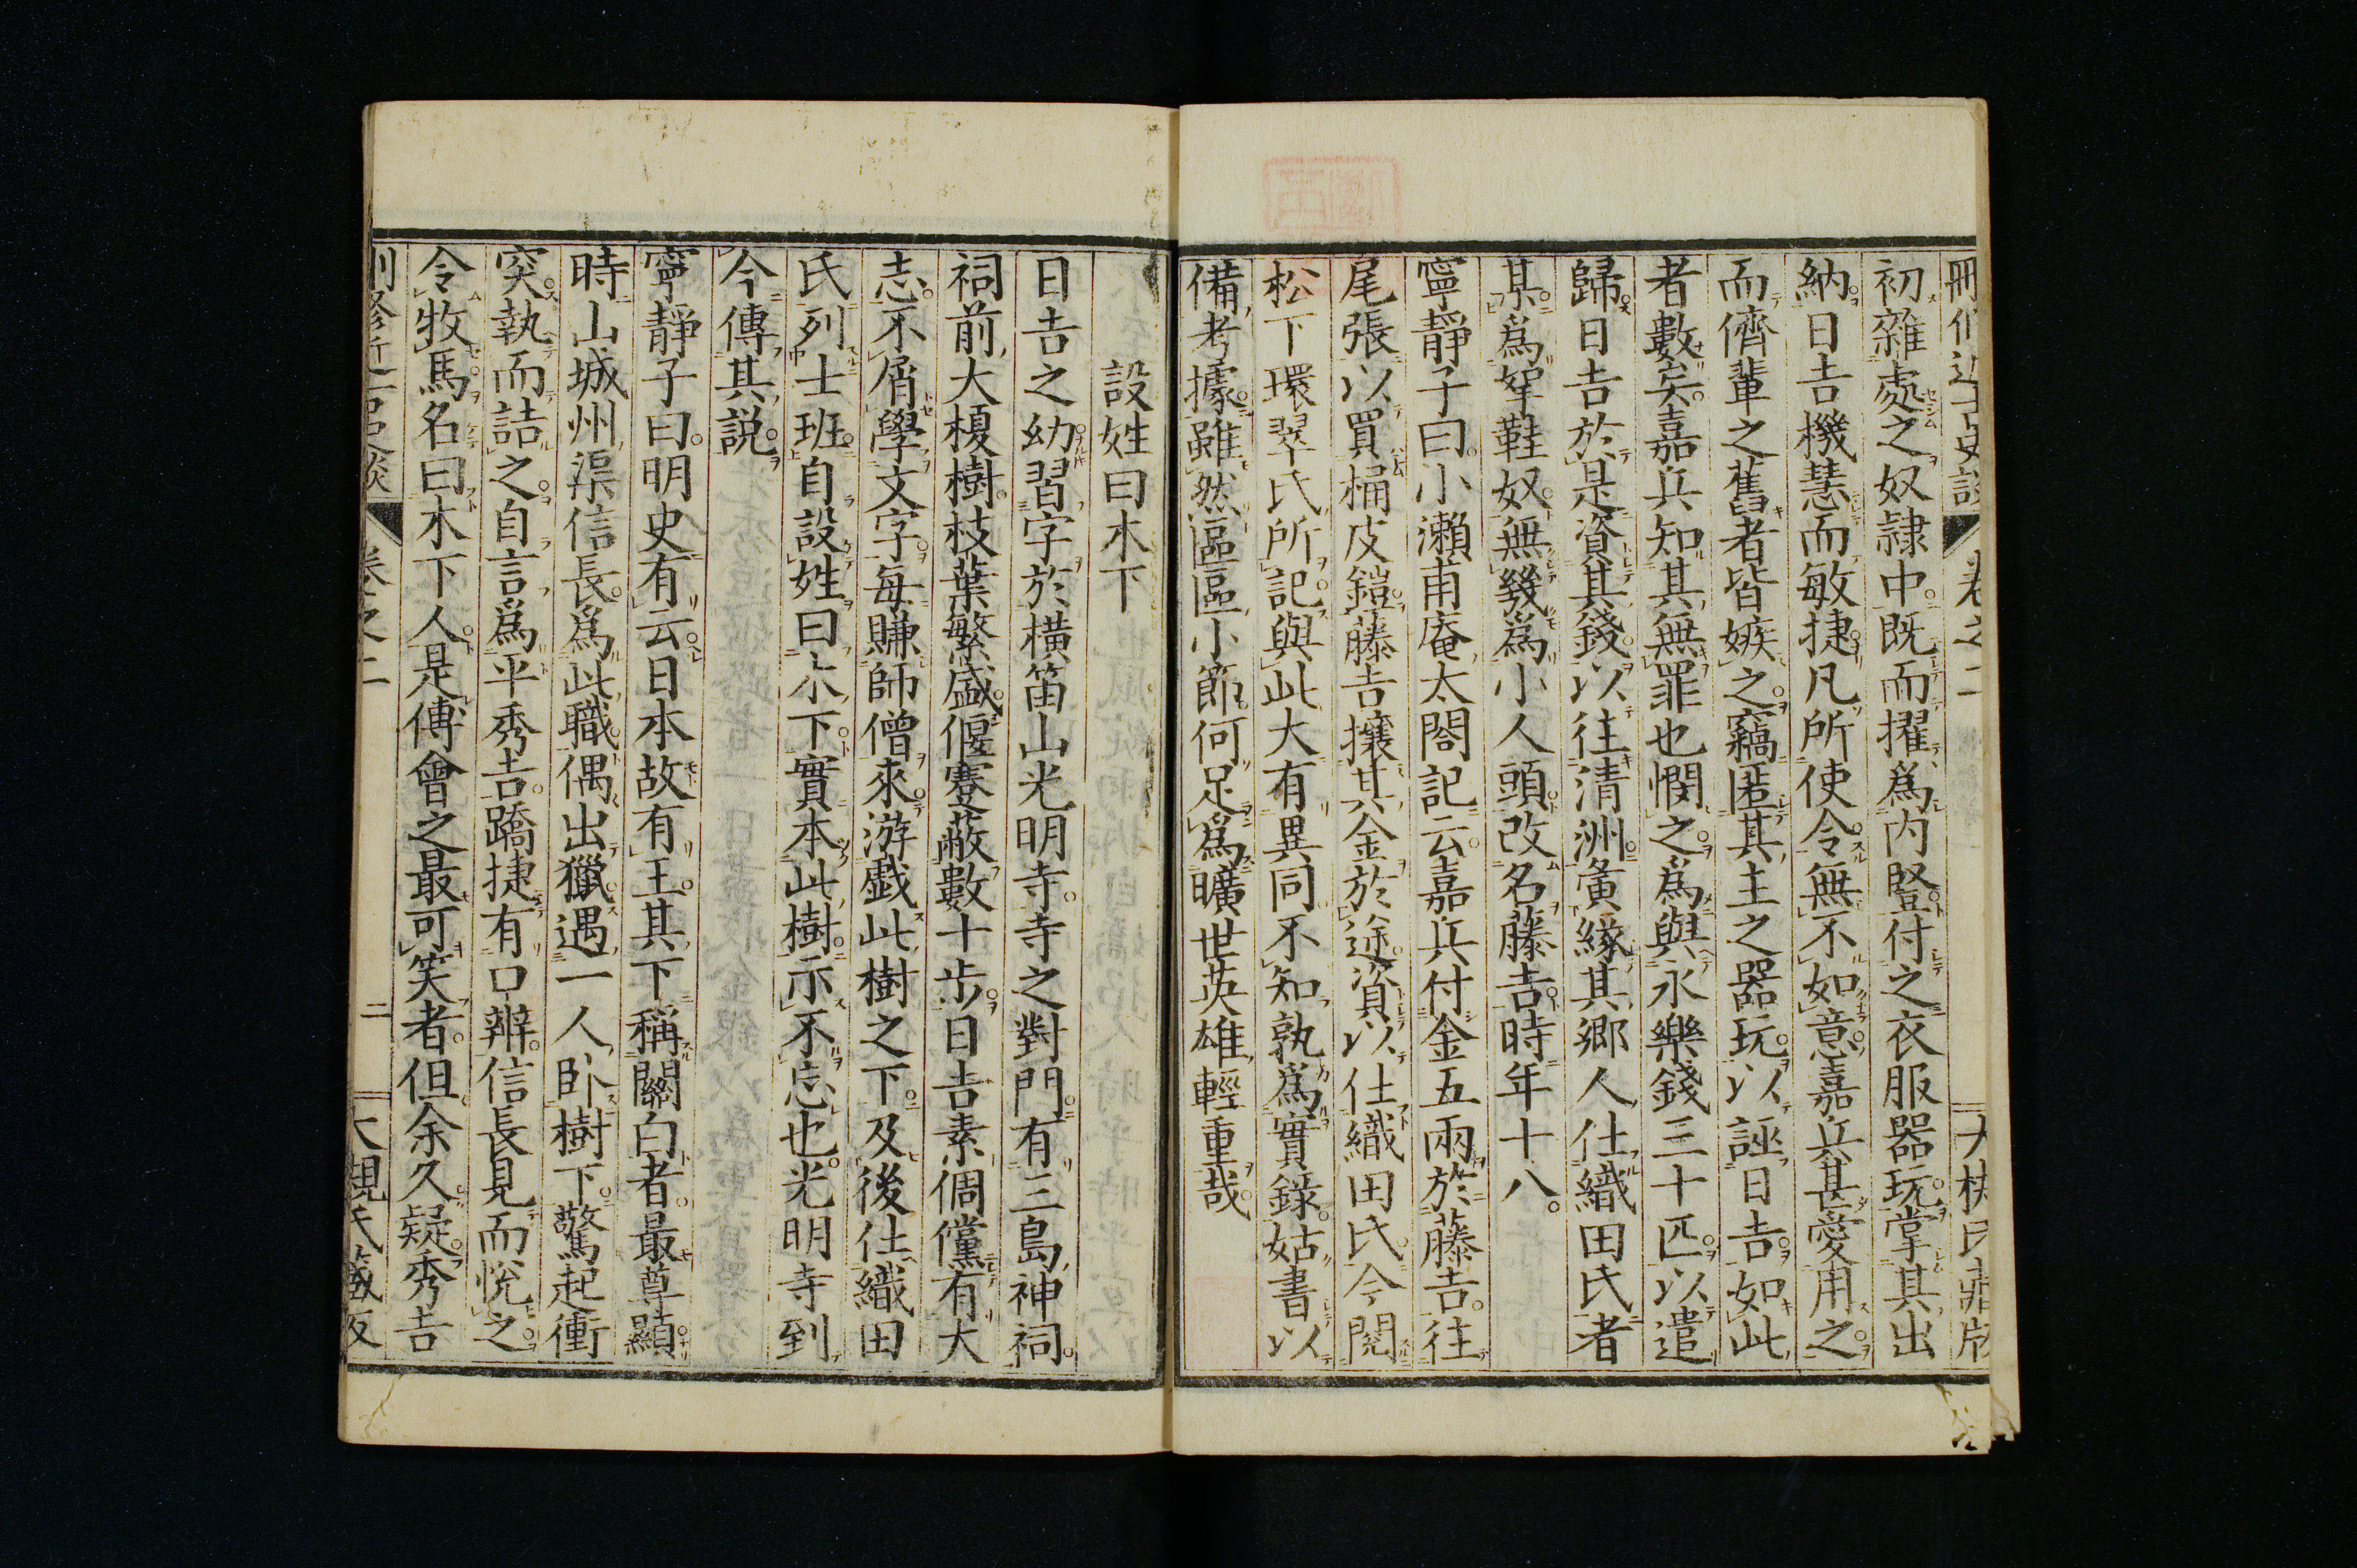 刪修近古史談 卷之二 大槻氏藏版
初雜處之奴隷中既而擢爲内豎付之衣服器玩掌其出
納日吉機慧而敏捷凡所使令無不如意嘉兵甚愛用之
而儕輩之舊者皆嫉之竊匿其主之器玩以誣日吉如此
者數矣嘉兵知其無罪也憫之爲與永樂錢三十匹以遣
歸日吉於是資其錢以往清洲夤緣其鄉人仕織田氏者
某爲挐鞋奴無幾爲小人頭改名藤吉時年十八。
寧靜子曰小瀨甫庵太閤記云嘉兵付金五兩於藤吉往
尾張以買桶皮鎧藤吉攘其金於途資以仕織田氏今閲
松下環翠氏所記與此大有異同不知孰爲實錄姑書以
備考據雖然區區小節何足爲曠世英雄輕重哉
設姓曰木下
日吉之幼習字於橫笛山光明寺寺之對門有三島神祠
祠前大榎樹枝葉繁盛偃蹇蔽數十步日吉素倜儻有大
志不屑學文字每賺師僧來游戯此樹之下及後仕織田
氏列士班自設姓曰木下實本此樹示不忘也光明寺到
今傳其説
寧靜子曰明史有云日本故有王其下稱關白者最尊顯
時山城州渠信長爲此職偶出獵遇一人臥樹下驚起衝
突執而詰之自言爲平秀吉蹻捷有口辨信長見而悅之
令牧馬名曰木下人是傅會之最可笑者但余久疑秀吉
刪修近古史談 卷之二 二 大槻氏藏版